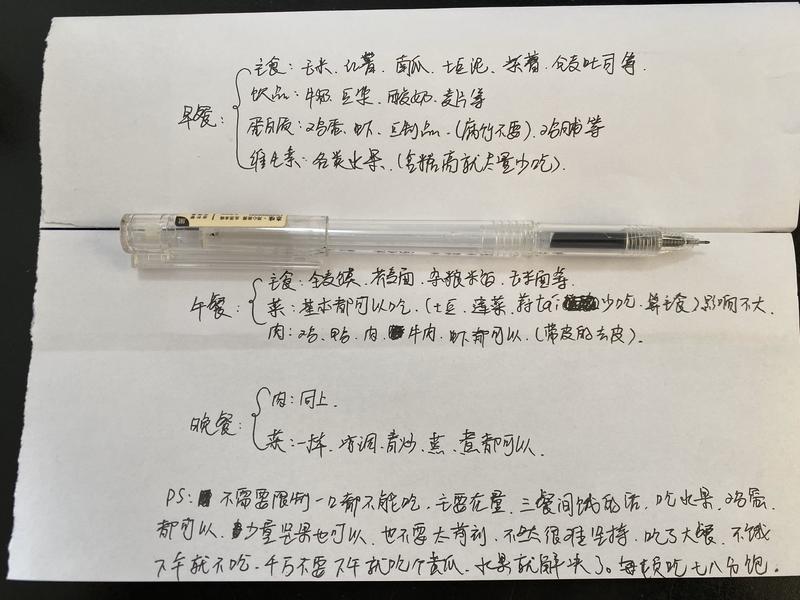 早餐:
主食:玉米、红薯、南瓜、土豆泥、紫薯、全麦吐司等.
饮品:牛奶、豆浆、酸奶、麦片等
蛋白质:鸡蛋、虾、豆制品、(腐竹不要)、鸡脯等
维生素:各类水果、(含糖高就尽量少吃).
午餐:
主食:全麦馍、荞麦面、杂粮米饭、玉米面等.
菜:基本都可以吃、(土豆、莲菜、蒜tai少吃、算主食)影响不大.
肉:鸡、鸭、肉、牛肉、虾都可以、(带皮的去皮).
晚餐:
肉:同上.
菜:一样、凉调、清炒、蒸、煮都可以、
PS:不需要限制一口都不能吃、主要在量、三餐间饿的话、吃水果、鸡蛋、
都可以、少量坚果也可以、也不要太苛刻、不然很难坚持、吃了大餐、不饿
下午就不吃、千万不要下午就吃个黄瓜、水果就解决了。每顿吃七八分饱.